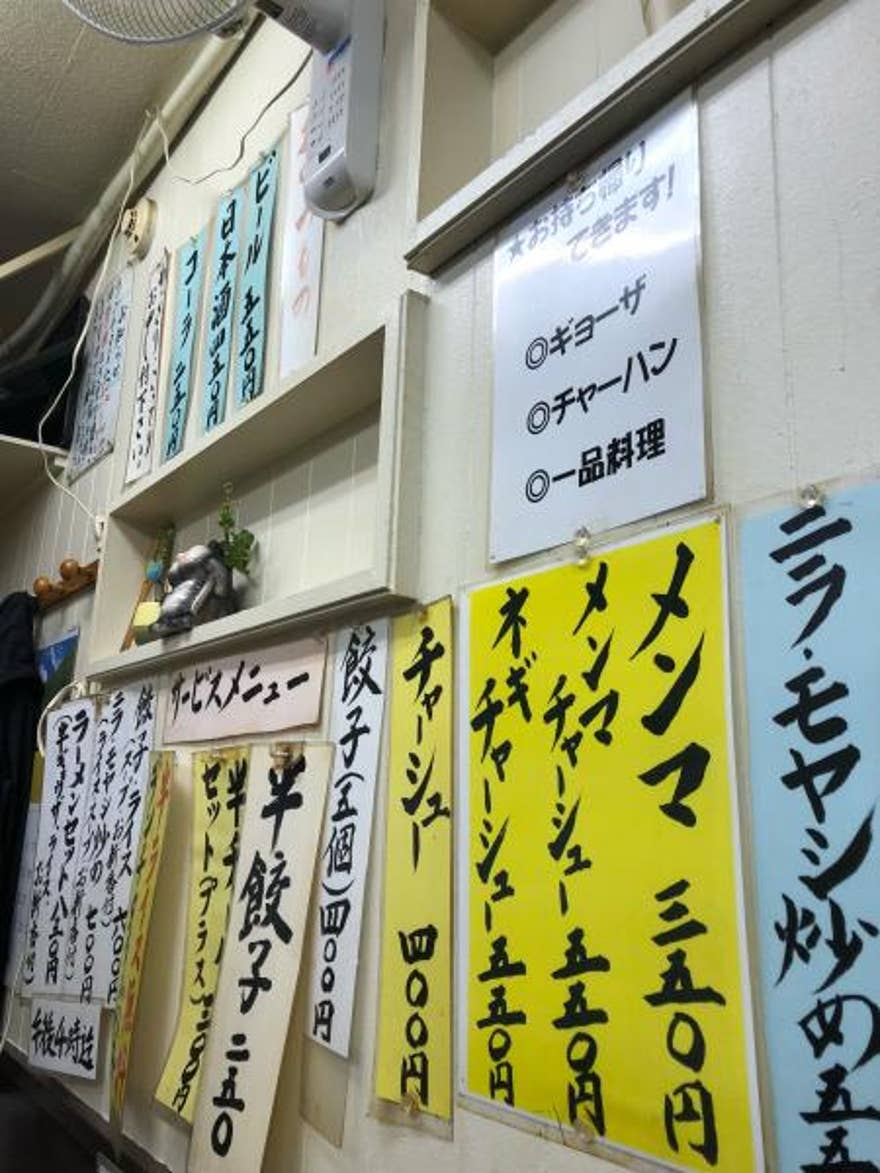 ★お持ち帰り
できます!
◎ギョーザ
◎チャーハン
◎一品料理
ビール 五五〇円
日本酒 四五〇円
コーラ 二五〇円
ニラ・モヤシ炒め 五五
メンマ 三五〇円
メンマチャーシュー 五五〇円
ネギチャーシュー 五五〇円
チャーシュー 四〇〇円
餃子(五個)四〇〇円
サービスメニュー
半餃子 二五〇
セット(プラス)二〇〇円
餃子・ライス 六〇〇円
(スープお新香付)
ニラ・モヤシ炒め 七〇〇円
(ライス・スープお新香付)
ラーメンセット八五〇円
(半ギョウザ・ライス・お新香付)
午後4時迄